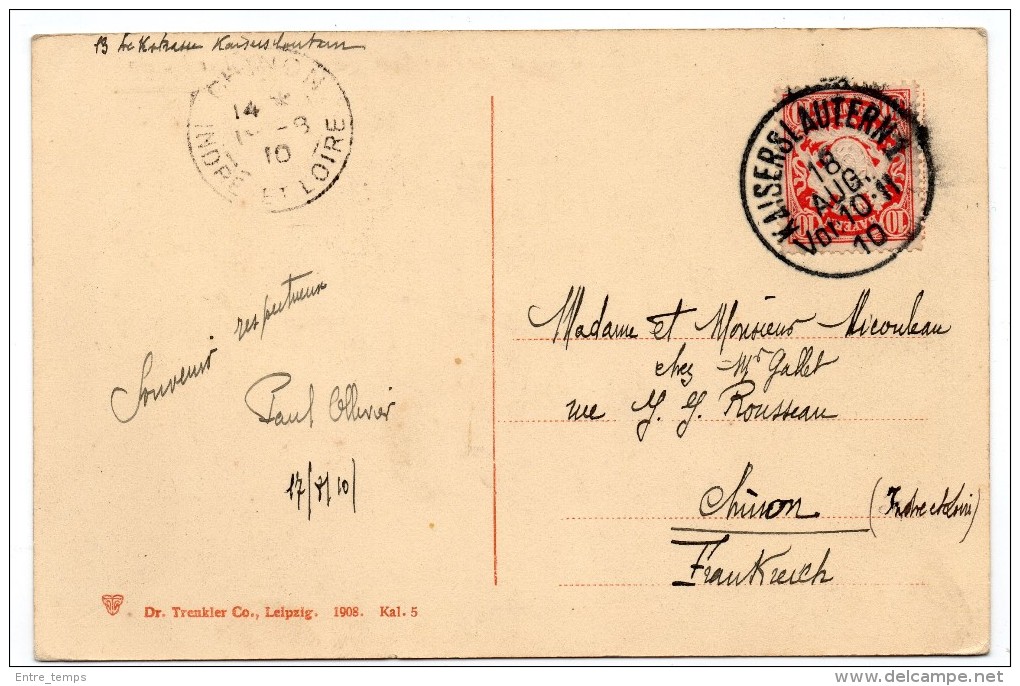 13 Kaiserslautern
CHINON
14 *
-8
10
INDRE ET LOIRE
KAISERSLAUTERN 1
18
AUG.
Vor 10-11
10
BAYERN
10 10
Souvenir respectueux
Paul Ollivier
17/8/10
Madame et Monsieur Micouleau
chez Mr Gallet
rue J. J. Rousseau
Chinon (Indre et Loire)
Frankreich
Dr. Trenkler Co., Leipzig. 1908. Kal. 5
Entre_temps
delcampe.net